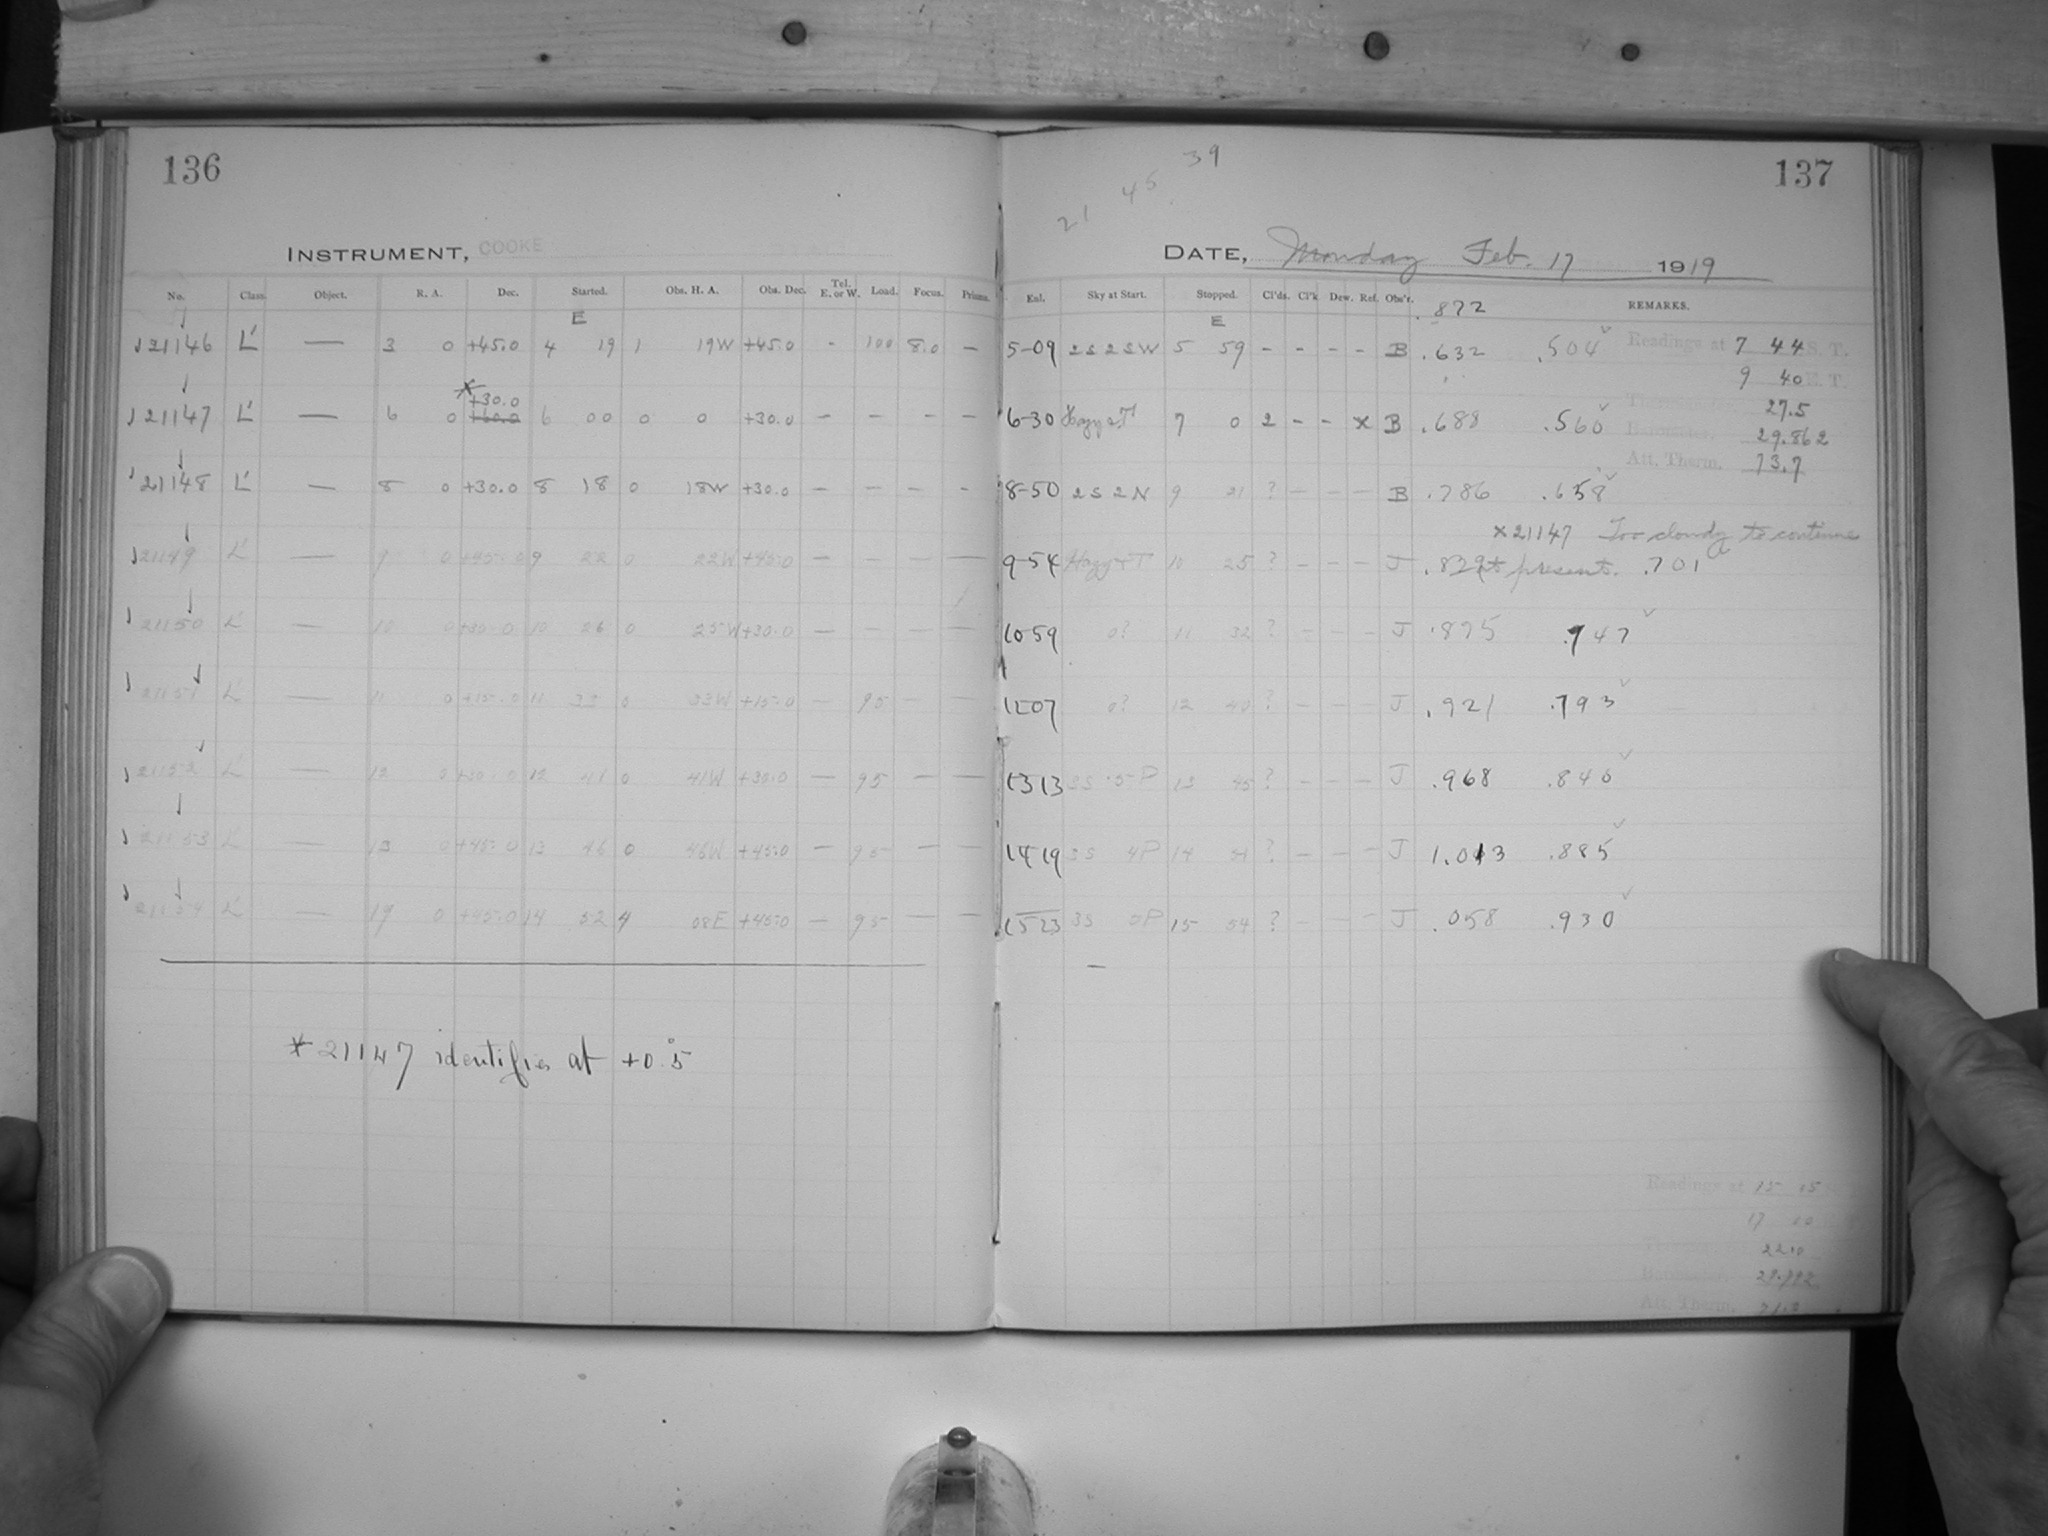 136
INSTRUMENT, COOKE
No. Class. Object. R. A. Dec. Started. Obs. H. A. Obs. Dec. Tel. E. or W. Load. Focus. Prisms.
E
21146 L' — 3 0 +45.0 4 19 1 19W +45.0 - 100 8.0 —
*
+30.0
21147 L' — 6 0 +60.0 6 00 0 0 +30.0 — — — —
21148 L' — 8 0 +30.0 8 18 0 18W +30.0 — — — -
21149 L' — 9 0 +45.0 9 22 0 22W +45.0 — — — —
21150 L' — 10 0 +30.0 10 26 0 25W +30.0 — — — —
21151 L' — 11 0 +15.0 11 33 0 33W +15.0 — 95 — —
21152 L' — 12 0 +30.0 12 41 0 41W +30.0 — 95 — —
21153 L' — 13 0 +45.0 13 46 0 46W +45.0 — 95 — —
21154 L' — 19 0 +45.0 14 52 4 08E +45.0 — 95 — —
* 21147 identifies at +0.°5
137
21 45 39
DATE, Monday Feb. 17 1919
Enl. Sky at Start. Stopped. Cl'ds. Cl'k Dew. Ref. Obs'r. .872 REMARKS.
E
5-09 2S 2SW 5 59 - - - - B .632 .504 Readings at 7 44 S. T.
9 40 E. T.
27.5
6-30 Hazy 2T 7 0 2 - - x B .688 .560
29.862
Att. Therm. 73.7
8-50 2S 2N 9 21 ? — — — B .786 .658
x21147 Too cloudy to continue
9-54 Hazy T 10 25 ? — — — J .829 at present. .701
10 59 0? 11 32 ? - - - J .875 .747
12 07 0? 12 40 ? - - - J .921 .793
13 13 3S 5P 13 45 ? - - - J .968 .840
14 19 3S 4P 14 51 ? - - - J 1.013 .885
15 23 3S 15 54 ? - - - J .058 .930
Readings at 15
17
22.0
Att. Therm.